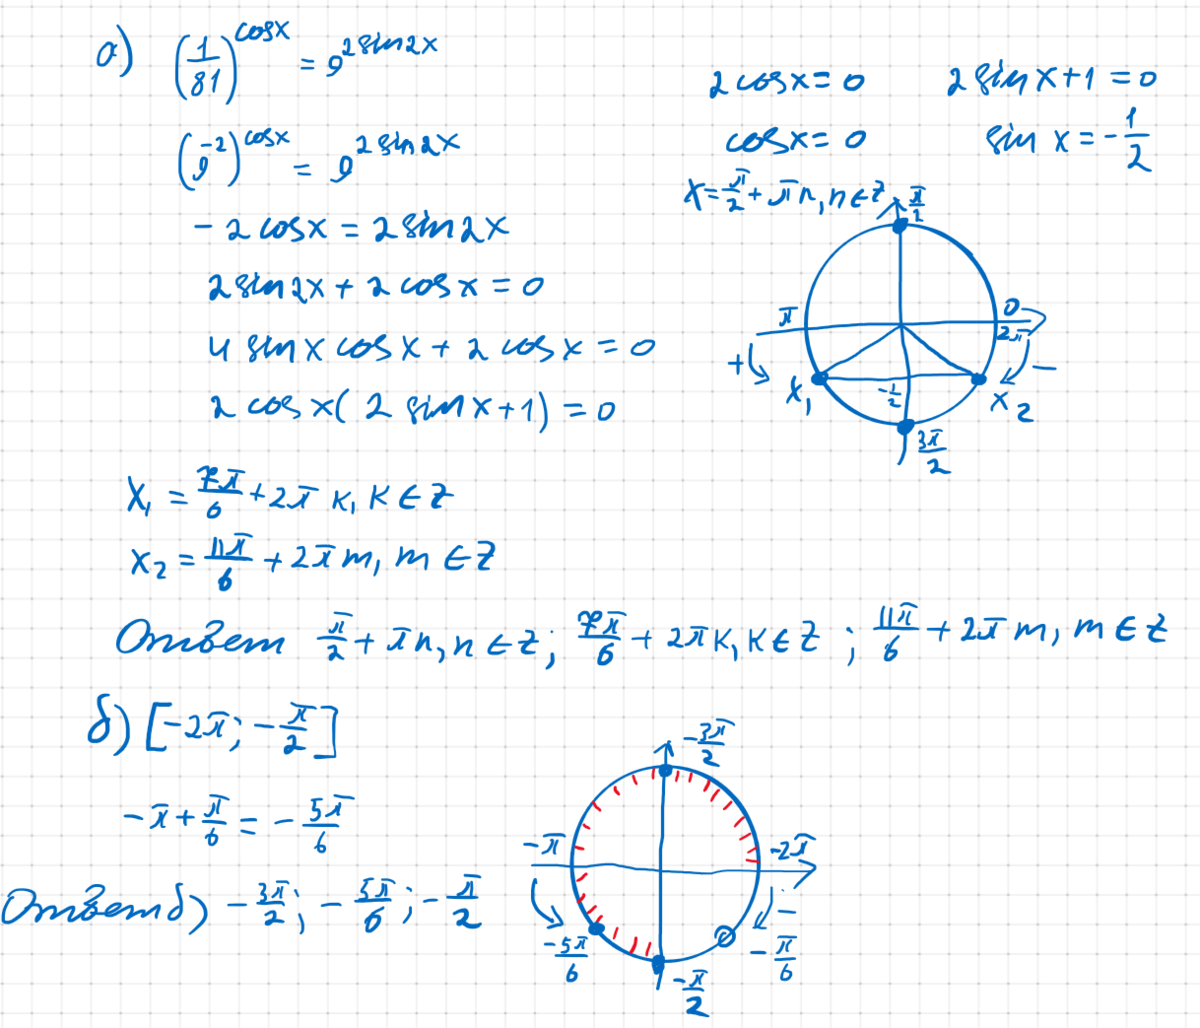 а) (1/81)^cosx = 9^2sin2x
(9^-2)^cosx = 9^2sin2x
- 2cosx = 2sin2x
2sin2x + 2cosx = 0
4 sinx cosx + 2 cosx = 0
2 cosx( 2 sinx+1) = 0
2cosx = 0
cosx = 0
x = π/2 + πn, n ∈ Z
2 sinx+1 = 0
sin x = -1/2
π/2
π
0
2π
+
-
x₁
-1/2
x₂
3π/2
x₁ = 7π/6 + 2π k, k ∈ Z
x₂ = 11π/6 + 2π m, m ∈ Z
Ответ π/2 + πn, n ∈ Z; 7π/6 + 2πk, k ∈ Z ; 11π/6 + 2πm, m ∈ Z
б) [-2π; -π/2]
-π + π/6 = - 5π/6
Ответ б) - 3π/2; - 5π/6; - π/2
-3π/2
-π
-2π
-
-5π/6
-π/6
-π/2